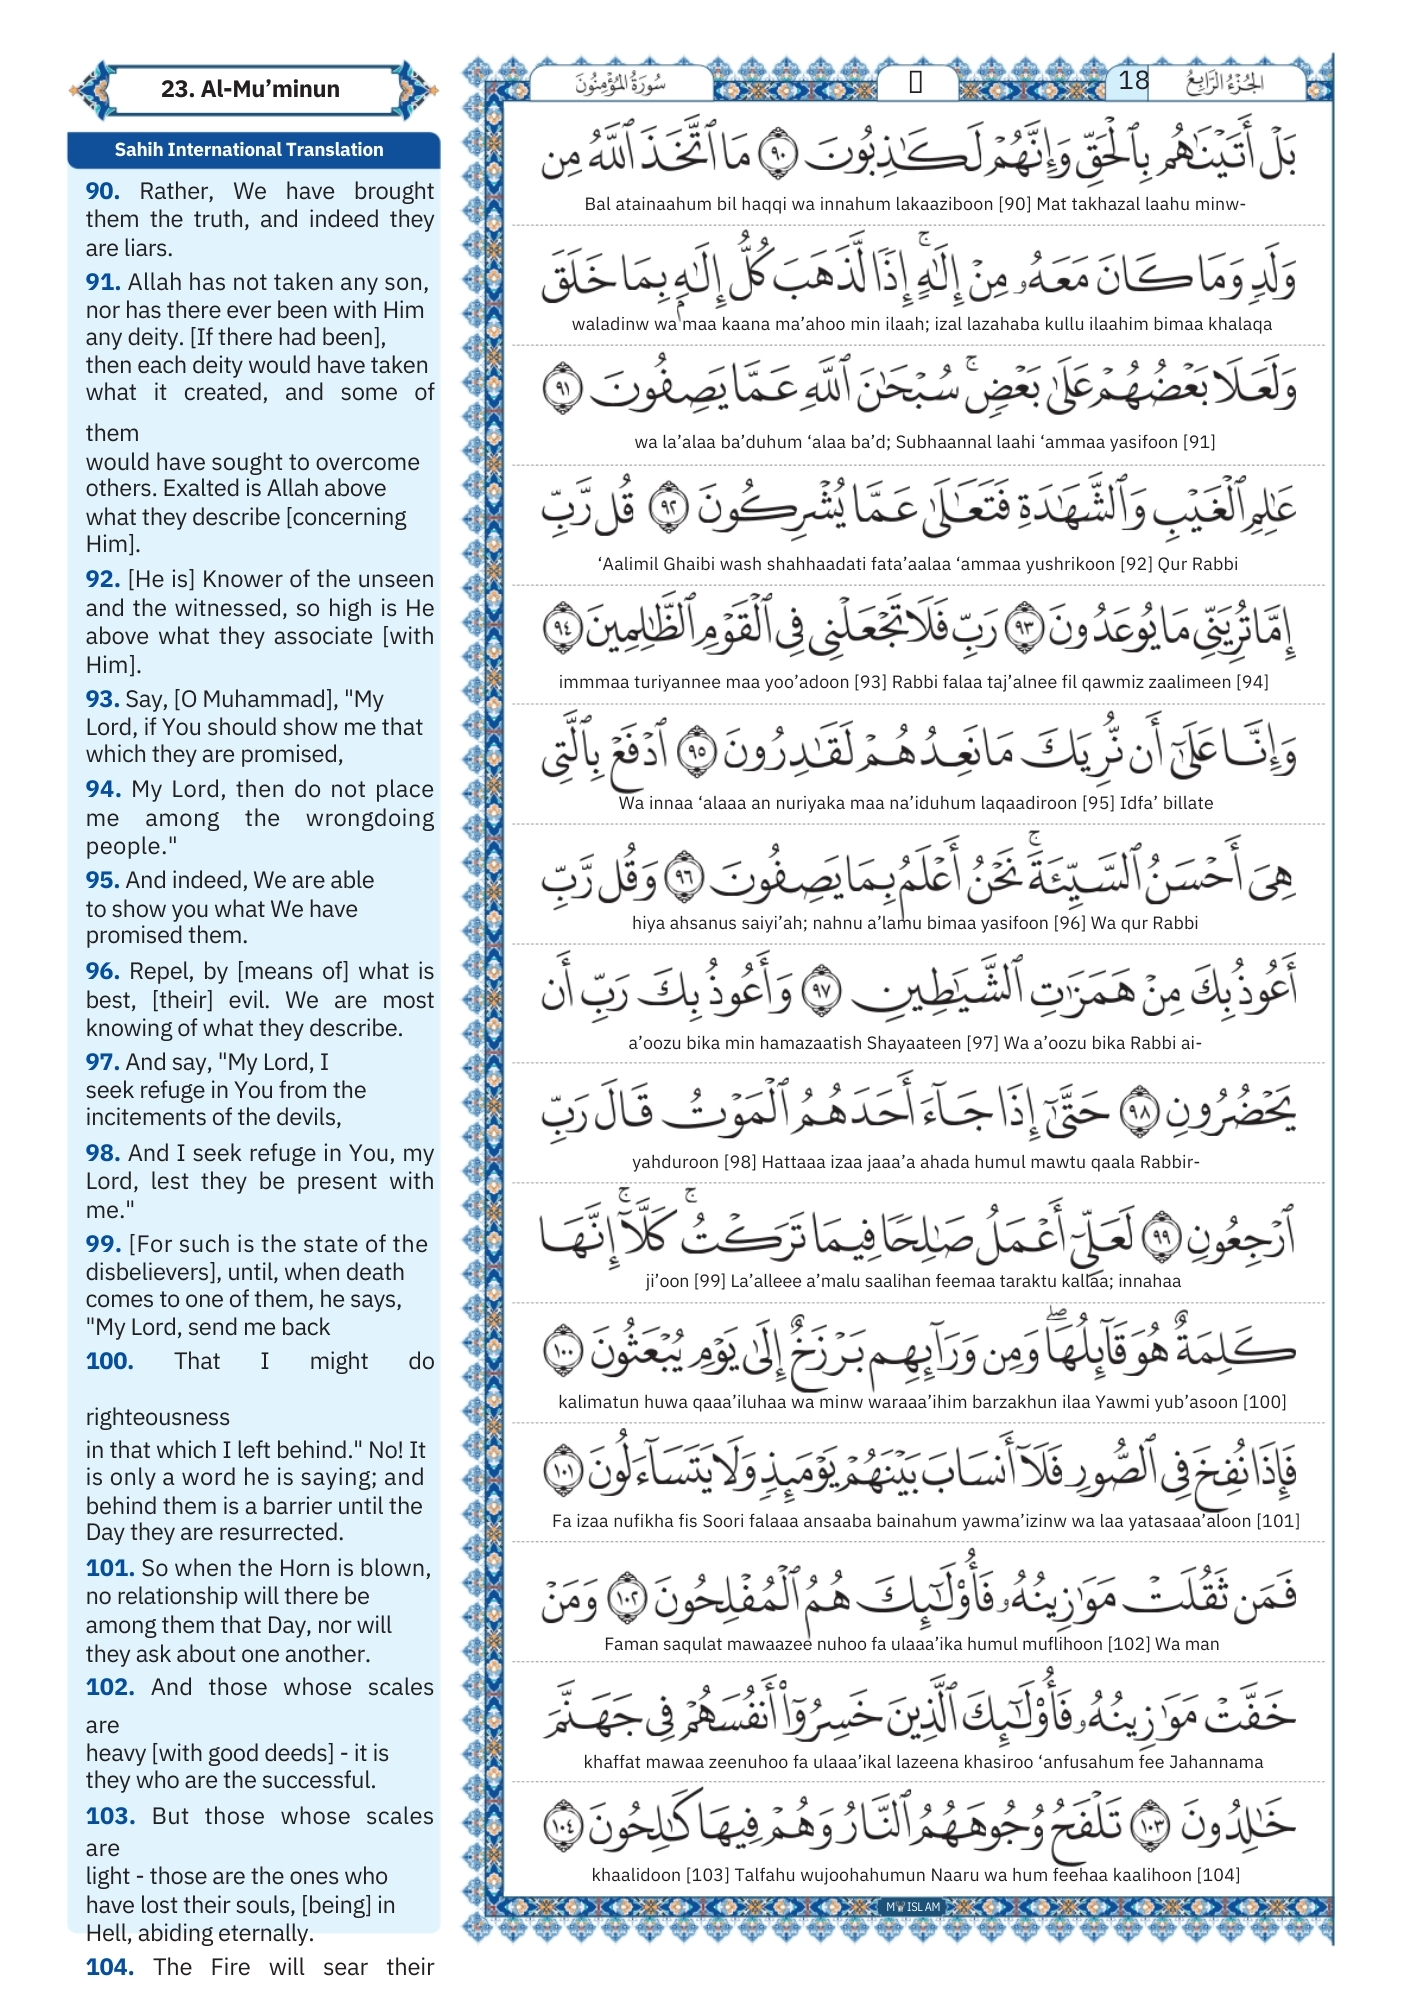 23. Al-Mu’minun
Sahih International Translation
90. Rather, We have brought
them the truth, and indeed they
are liars.
91. Allah has not taken any son,
nor has there ever been with Him
any deity. [If there had been],
then each deity would have taken
what it created, and some of
them
would have sought to overcome
others. Exalted is Allah above
what they describe [concerning
Him].
92. [He is] Knower of the unseen
and the witnessed, so high is He
above what they associate [with
Him].
93. Say, [O Muhammad], "My
Lord, if You should show me that
which they are promised,
94. My Lord, then do not place
me among the wrongdoing
people."
95. And indeed, We are able
to show you what We have
promised them.
96. Repel, by [means of] what is
best, [their] evil. We are most
knowing of what they describe.
97. And say, "My Lord, I
seek refuge in You from the
incitements of the devils,
98. And I seek refuge in You, my
Lord, lest they be present with
me."
99. [For such is the state of the
disbelievers], until, when death
comes to one of them, he says,
"My Lord, send me back
100. That I might do
righteousness
in that which I left behind." No! It
is only a word he is saying; and
behind them is a barrier until the
Day they are resurrected.
101. So when the Horn is blown,
no relationship will there be
among them that Day, nor will
they ask about one another.
102. And those whose scales
are
heavy [with good deeds] - it is
they who are the successful.
103. But those whose scales
are
light - those are the ones who
have lost their souls, [being] in
Hell, abiding eternally.
104. The Fire will sear their
سُورَةُ المُؤْمِنُونَ
18 الجُزْءُ الرَّابِعُ
بَلْ أَتَيْنَٰهُم بِٱلْحَقِّ وَإِنَّهُمْ لَكَٰذِبُونَ ٩٠ مَا ٱتَّخَذَ ٱللَّهُ مِن
Bal atainaahum bil haqqi wa innahum lakaaziboon [90] Mat takhazal laahu minw-
وَلَدٍ وَمَا كَانَ مَعَهُۥ مِنْ إِلَٰهٍ ۚ إِذًا لَّذَهَبَ كُلُّ إِلَٰهٍۭ بِمَا خَلَقَ
waladinw wa maa kaana ma’ahoo min ilaah; izal lazahaba kullu ilaahim bimaa khalaqa
وَلَعَلَا بَعْضُهُمْ عَلَىٰ بَعْضٍ ۚ سُبْحَٰنَ ٱللَّهِ عَمَّا يَصِفُونَ ٩١
wa la’alaa ba’duhum ‘alaa ba’d; Subhaannal laahi ‘ammaa yasifoon [91]
عَٰلِمِ ٱلْغَيْبِ وَٱلشَّهَٰدَةِ فَتَعَٰلَىٰ عَمَّا يُشْرِكُونَ ٩٢ قُل رَّبِّ
‘Aalimil Ghaibi wash shahhaadati fata’aalaa ‘ammaa yushrikoon [92] Qur Rabbi
إِمَّا تُرِيَنِّى مَا يُوعَدُونَ ٩٣ رَبِّ فَلَا تَجْعَلْنِى فِى ٱلْقَوْمِ ٱلظَّٰلِمِينَ ٩٤
immmaa turiyannee maa yoo’adoon [93] Rabbi falaa taj’alnee fil qawmiz zaalimeen [94]
وَإِنَّا عَلَىٰٓ أَن نُّرِيَكَ مَا نَعِدُهُمْ لَقَٰدِرُونَ ٩٥ ٱدْفَعْ بِٱلَّتِى
Wa innaa ‘alaaa an nuriyaka maa na’iduhum laqaadiroon [95] Idfa’ billate
هِىَ أَحْسَنُ ٱلسَّيِّئَةَ ۚ نَحْنُ أَعْلَمُ بِمَا يَصِفُونَ ٩٦ وَقُل رَّبِّ
hiya ahsanus saiyi’ah; nahnu a’lamu bimaa yasifoon [96] Wa qur Rabbi
أَعُوذُ بِكَ مِنْ هَمَزَٰتِ ٱلشَّيَٰطِينِ ٩٧ وَأَعُوذُ بِكَ رَبِّ أَن
a’oozu bika min hamazaatish Shayaateen [97] Wa a’oozu bika Rabbi ai-
يَحْضُرُونِ ٩٨ حَتَّىٰٓ إِذَا جَآءَ أَحَدَهُمُ ٱلْمَوْتُ قَالَ رَبِّ
yahduroon [98] Hattaaa izaa jaaa’a ahada humul mawtu qaala Rabbir-
ٱرْجِعُونِ ٩٩ لَعَلِّىٓ أَعْمَلُ صَٰلِحًا فِيمَا تَرَكْتُ ۚ كَلَّآ ۚ إِنَّهَا
ji’oon [99] La’alleee a’malu saalihan feemaa taraktu kallaa; innahaa
كَلِمَةٌ هُوَ قَآئِلُهَا ۖ وَمِن وَرَآئِهِم بَرْزَخٌ إِلَىٰ يَوْمِ يُبْعَثُونَ ١٠٠
kalimatun huwa qaaa’iluhaa wa minw waraaa’ihim barzakhun ilaa Yawmi yub’asoon [100]
فَإِذَا نُفِخَ فِى ٱلصُّورِ فَلَآ أَنسَابَ بَيْنَهُمْ يَوْمَئِذٍ وَلَا يَتَسَآءَلُونَ ١٠١
Fa izaa nufikha fis Soori falaaa ansaaba bainahum yawma’izinw wa laa yatasaaa’aloon [101]
فَمَن ثَقُلَتْ مَوَٰزِينُهُۥ فَأُو۟لَٰٓئِكَ هُمُ ٱلْمُفْلِحُونَ ١٠٢ وَمَنْ
Faman saqulat mawaazee nuhoo fa ulaaa’ika humul muflihoon [102] Wa man
خَفَّتْ مَوَٰزِينُهُۥ فَأُو۟لَٰٓئِكَ ٱلَّذِينَ خَسِرُوٓا۟ أَنفُسَهُمْ فِى جَهَنَّمَ
khaffat mawaa zeenuhoo fa ulaaa’ikal lazeena khasiroo ‘anfusahum fee Jahannama
خَٰلِدُونَ ١٠٣ تَلْفَحُ وُجُوهَهُمُ ٱلنَّارُ وَهُمْ فِيهَا كَٰلِحُونَ ١٠٤
khaalidoon [103] Talfahu wujoohahumun Naaru wa hum feehaa kaalihoon [104]
MY ISLAM